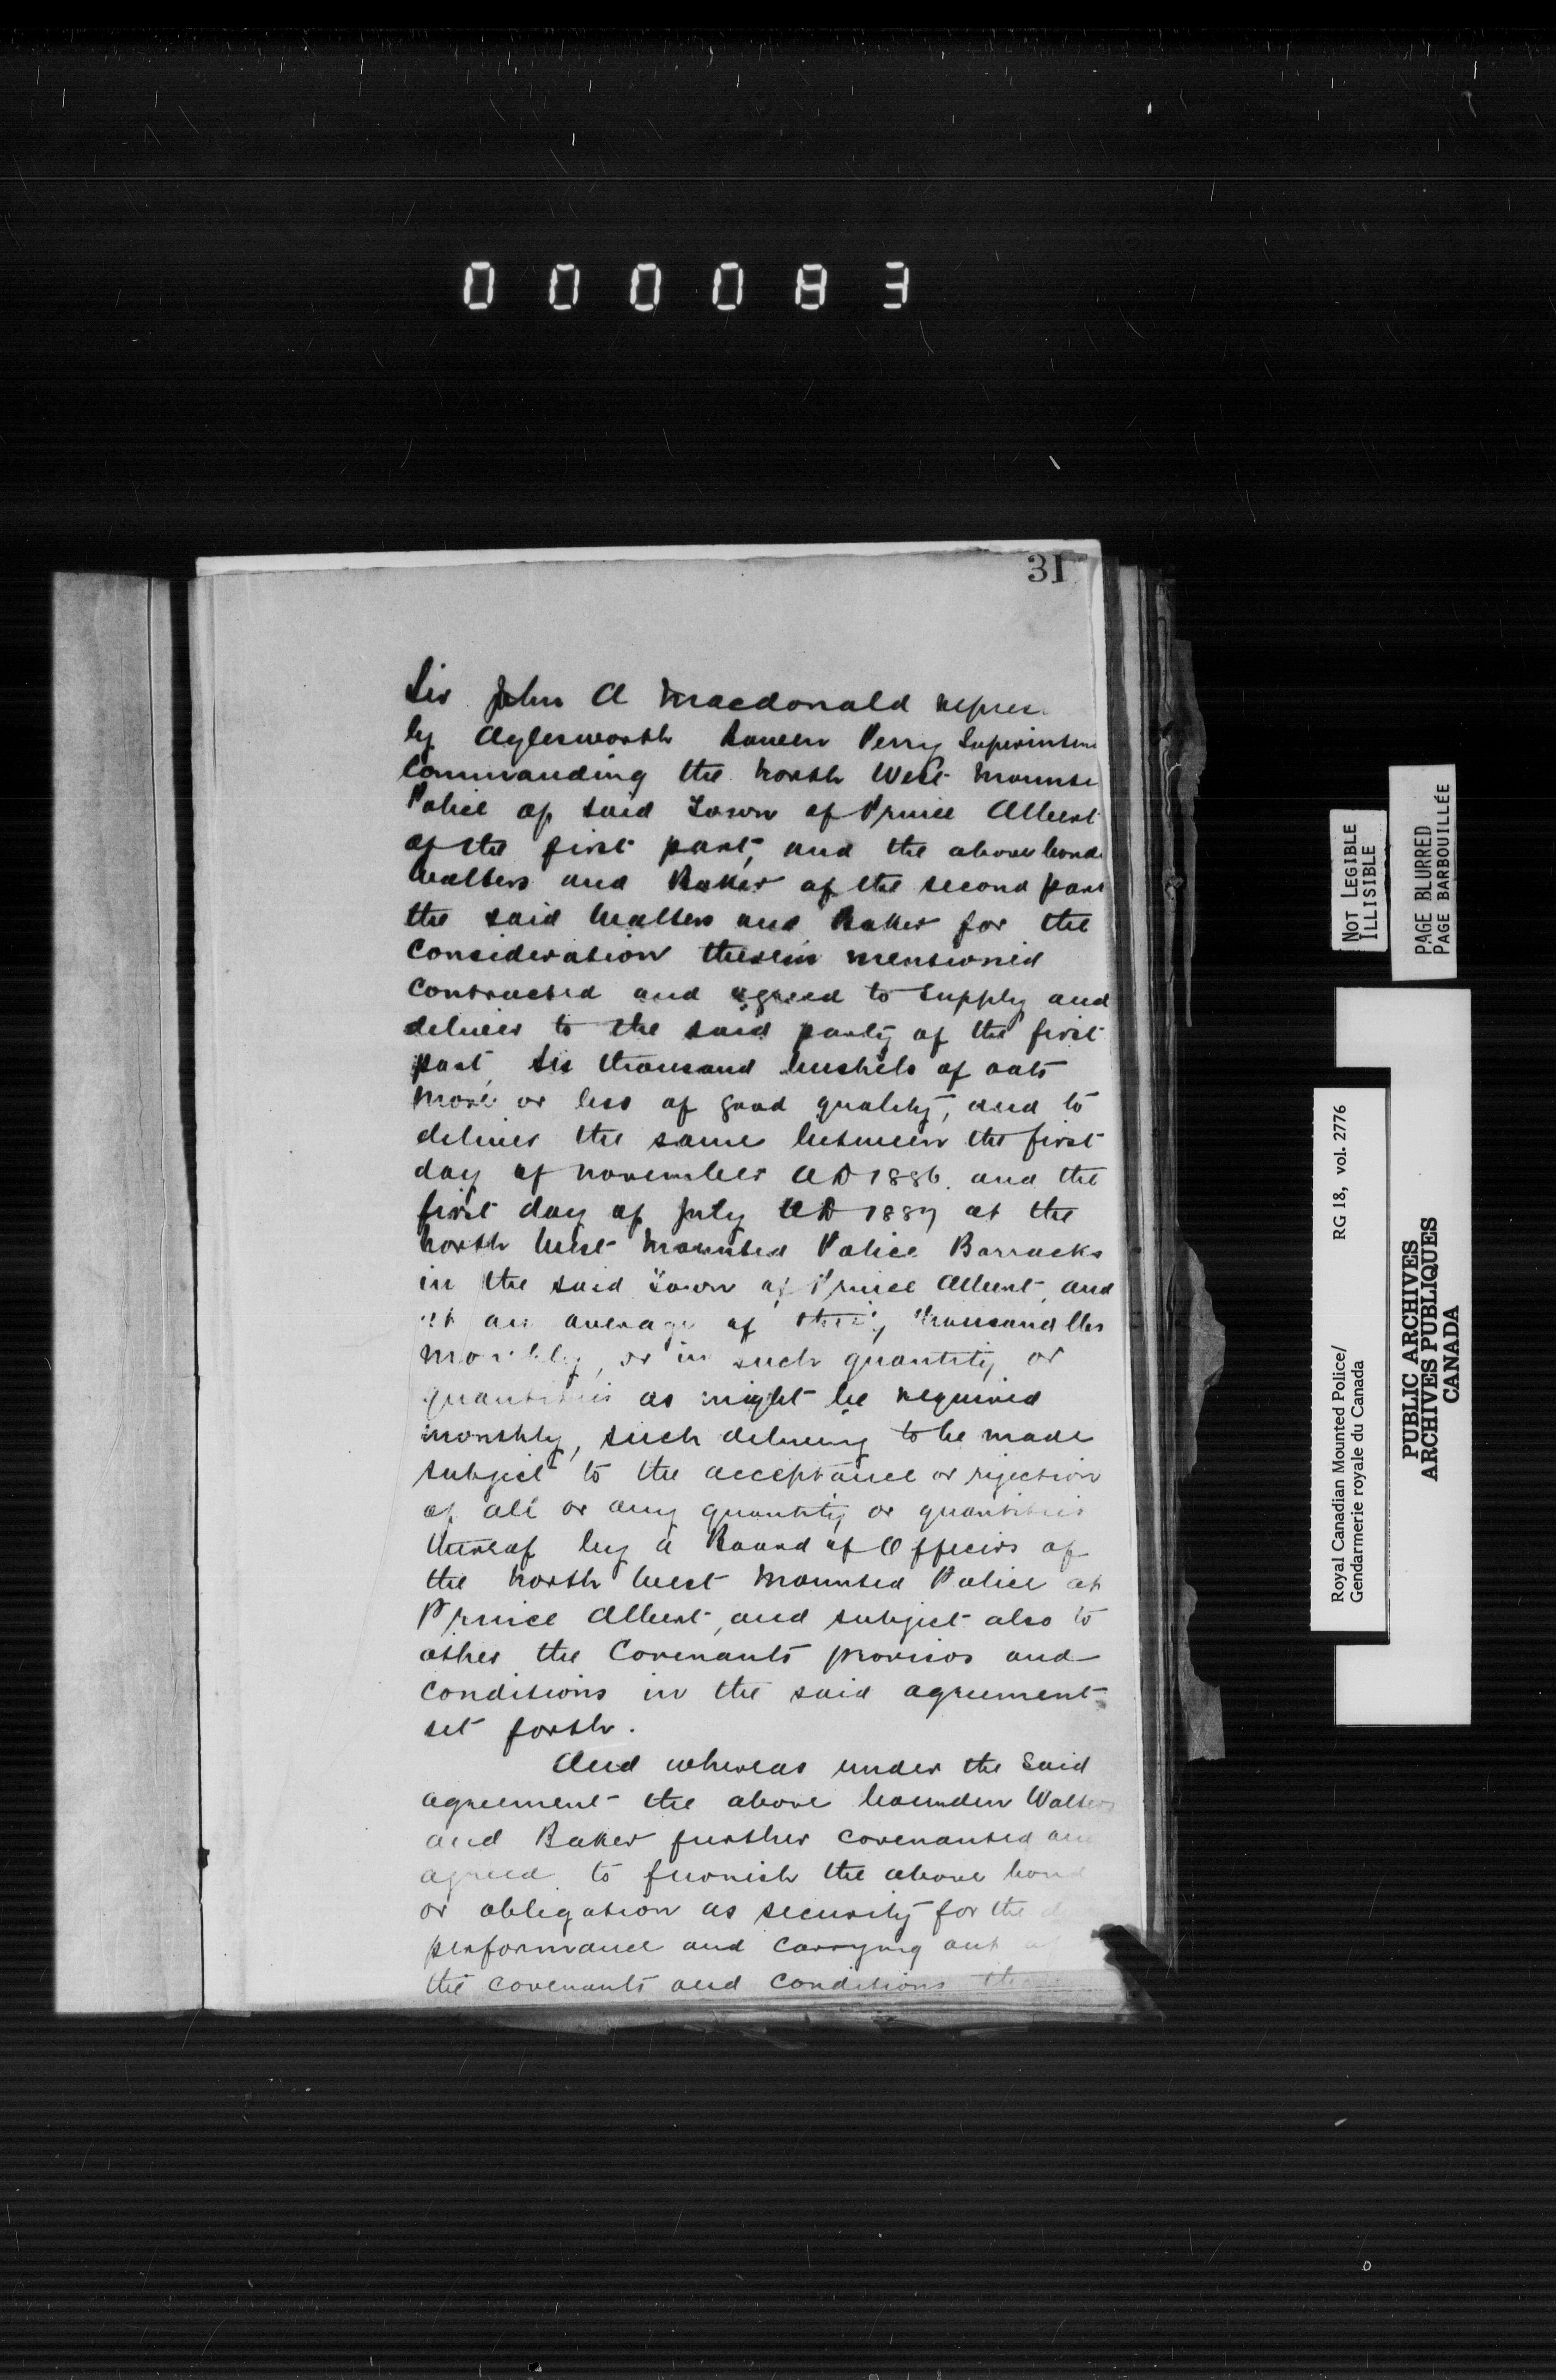 000083
31
Sir John A Macdonald repres
by Aylesworth Bowen Perry Superinten
Commanding the North West Mounte
Police of said Town of Prince Albert
of the first part, and the above bound
Walters and Baker of the second part
the said Walters and Baker for the
consideration therein mentioned
contracted and agreed to supply and
deliver to the said party of the first
part, six thousand bushels of oats
more or less of good quality, and to
deliver the same between the first
day of November AD 1886. and the
first day of July AD 1887 at the
North West Mounted Police Barracks
in the said Town of Prince Albert, and
at an average of thirty thousand lbs
monthly, or in such quantity or
quantities as might be required
monthly, such delivery to be made
subject to the acceptance or rejection
of all or any quantity or quantities
thereof by a Board of Officers of
the North West Mounted Police at
Prince Albert, and subject also to
other the Covenants provisos and
conditions in the said agreement
set forth.
And whereas under the said
agreement the above bounden Walters
and Baker further covenanted an
agreed to furnish the above bond
or obligation as security for the d
performance and carrying out of
the covenants and conditions the
NOT LEGIBLE
ILLISIBLE
PAGE BLURRED
PAGE BARBOUILLÉE
Royal Canadian Mounted Police/ RG 18, vol. 2776
Gendarmerie royale du Canada
PUBLIC ARCHIVES
ARCHIVES PUBLIQUES
CANADA